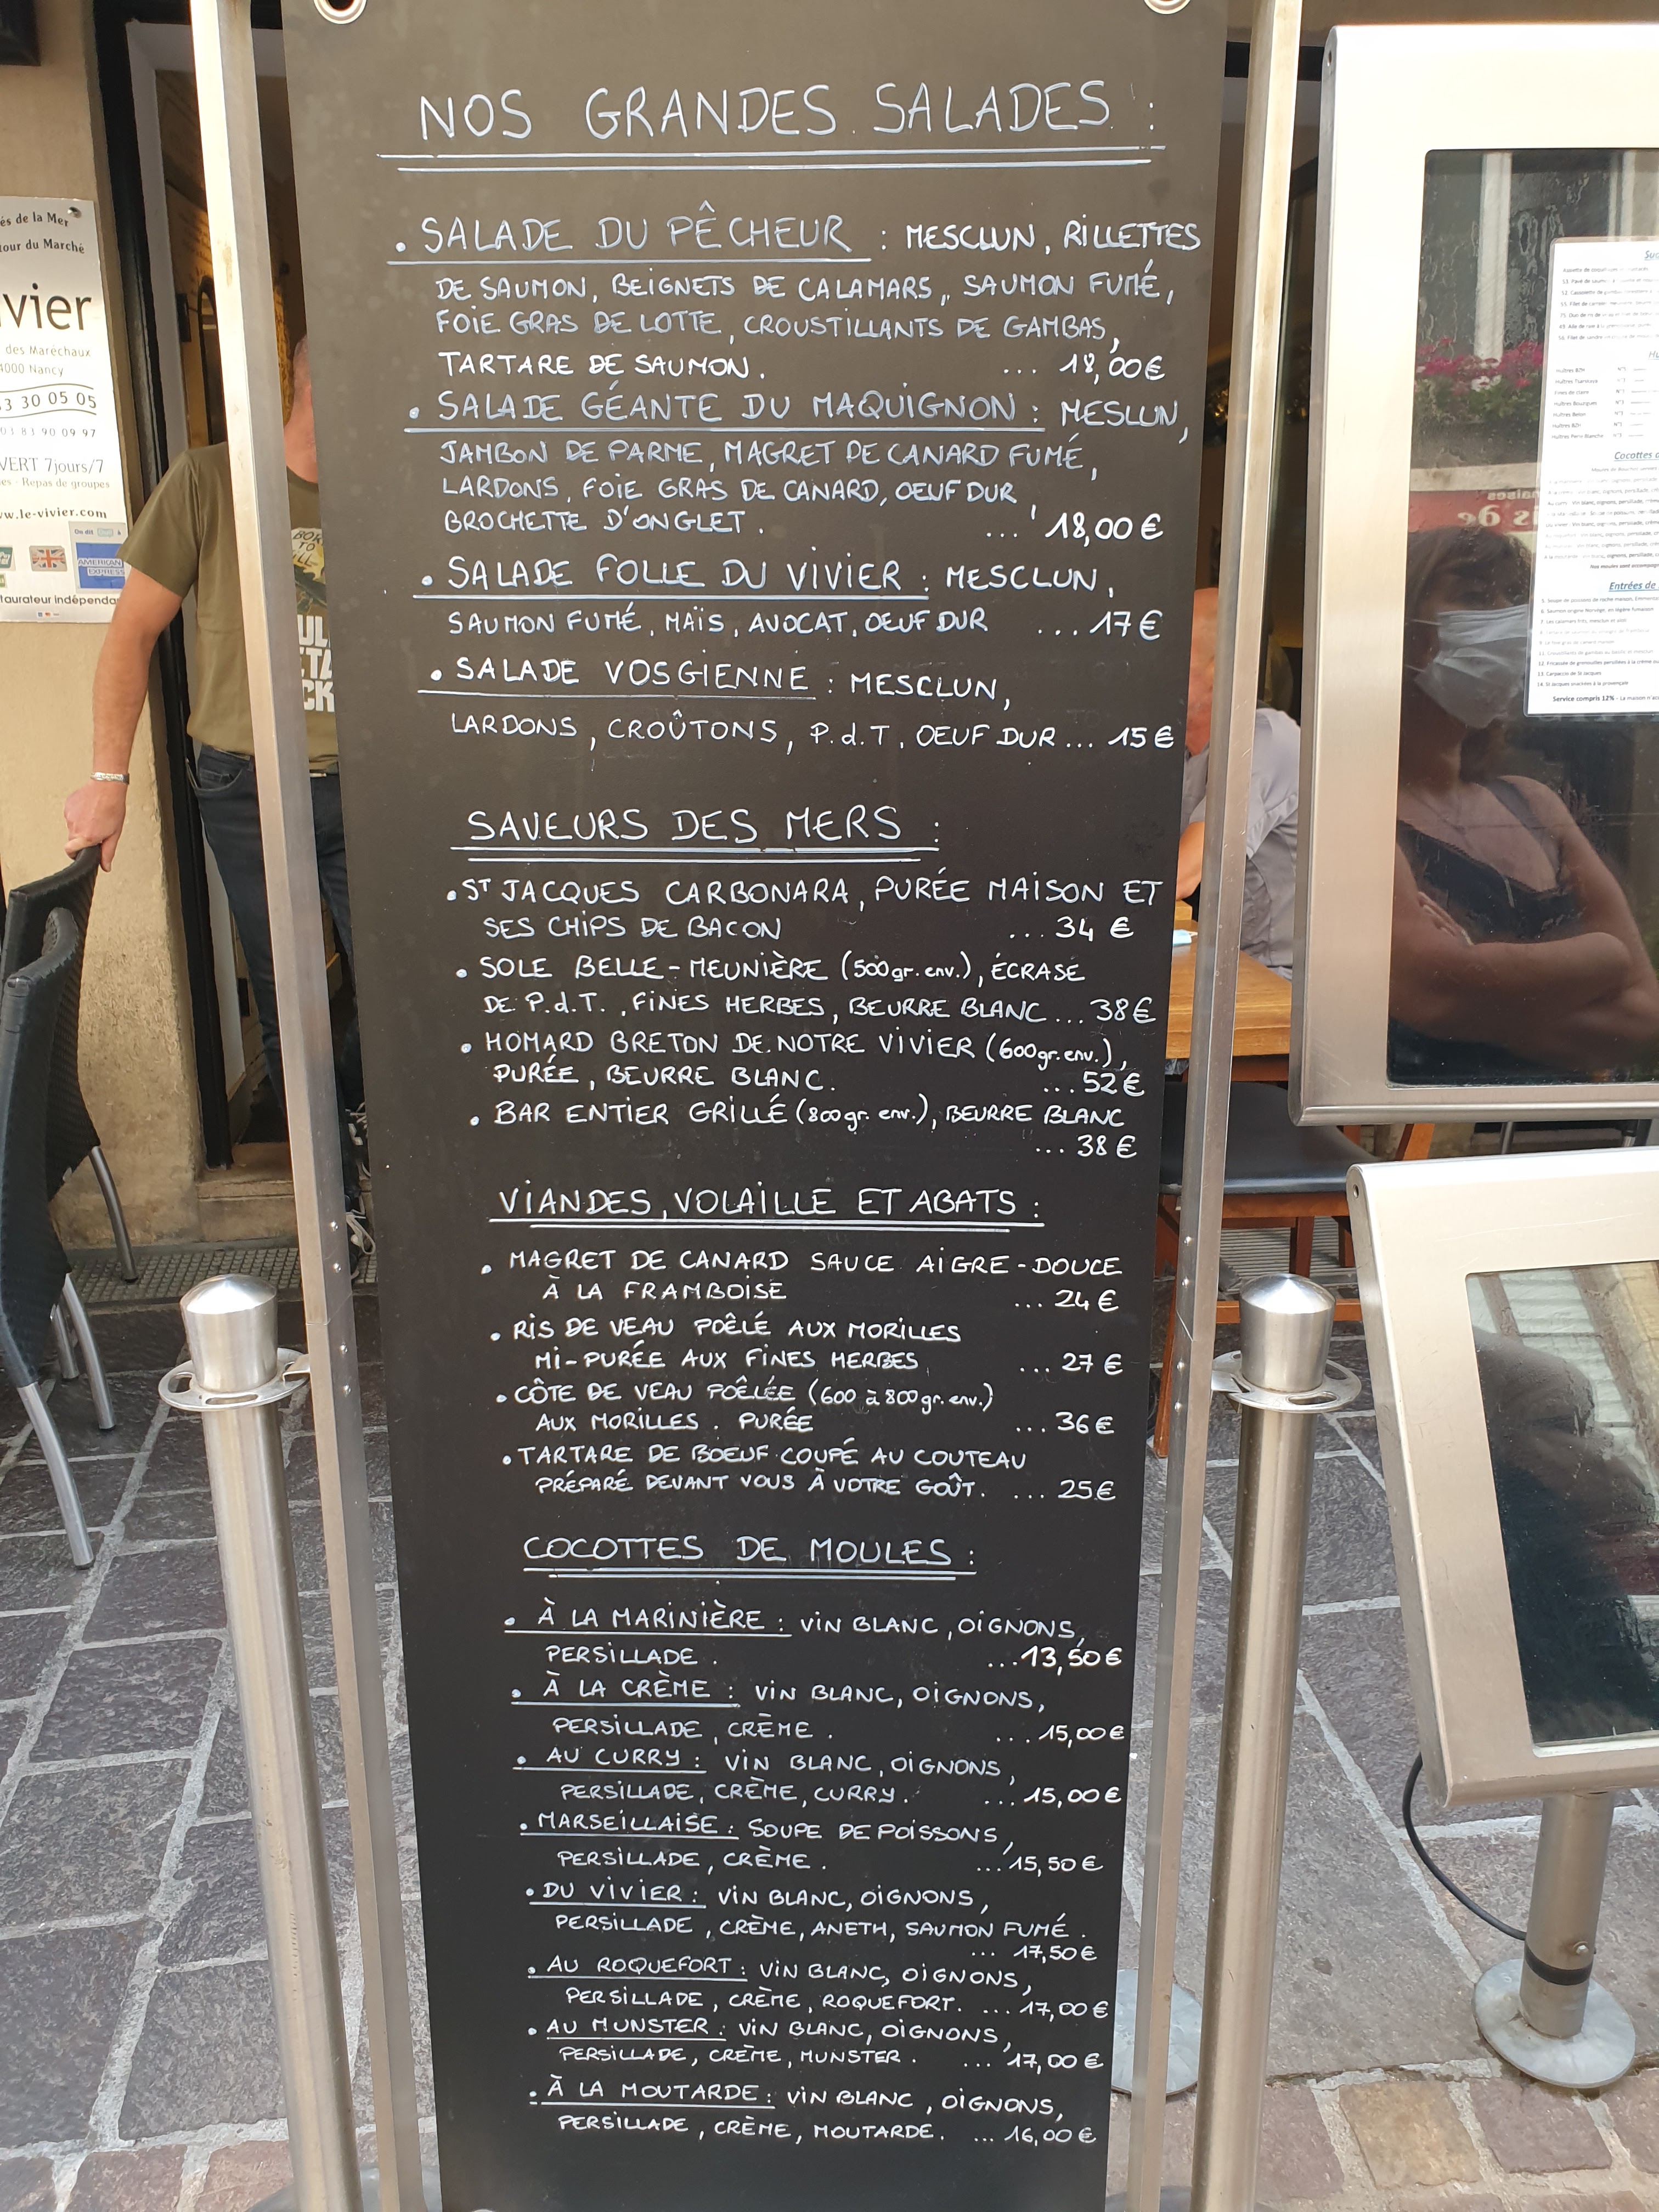 NOS GRANDES SALADES :
. SALADE DU PÊCHEUR : MESCLUN, RILLETTES
DE SAUMON, BEIGNETS DE CALAMARS, SAUMON FUMÉ,
FOIE GRAS DE LOTTE, CROUSTILLANTS DE GAMBAS,
TARTARE DE SAUMON. ... 18,00 €
. SALADE GÉANTE DU MAQUIGNON : MESLUN,
JAMBON DE PARME, MAGRET DE CANARD FUMÉ,
LARDONS, FOIE GRAS DE CANARD, OEUF DUR,
BROCHETTE D'ONGLET. ... 18,00 €
. SALADE FOLLE DU VIVIER : MESCLUN,
SAUMON FUMÉ, MAÏS, AVOCAT, OEUF DUR ... 17 €
. SALADE VOSGIENNE : MESCLUN,
LARDONS, CROÛTONS, P.d.T, OEUF DUR ... 15 €
SAVEURS DES MERS :
. ST JACQUES CARBONARA, PURÉE MAISON ET
SES CHIPS DE BACON ... 34 €
. SOLE BELLE-MEUNIÈRE (500gr. env.), ÉCRASE
DE P.d.T., FINES HERBES, BEURRE BLANC ... 38 €
. HOMARD BRETON DE NOTRE VIVIER (600gr. env.),
PURÉE, BEURRE BLANC. ... 52 €
. BAR ENTIER GRILLÉ (800gr. env.), BEURRE BLANC
... 38 €
VIANDES, VOLAILLE ET ABATS :
. MAGRET DE CANARD SAUCE AIGRE-DOUCE
À LA FRAMBOISE ... 24 €
. RIS DE VEAU POÊLÉ AUX MORILLES
MI-PURÉE AUX FINES HERBES ... 27 €
. CÔTE DE VEAU POÊLÉE (600 à 800gr. env.)
AUX MORILLES. PURÉE ... 36 €
. TARTARE DE BOEUF COUPÉ AU COUTEAU
PRÉPARÉ DEVANT VOUS À VOTRE GOÛT. ... 25 €
COCOTTES DE MOULES :
. À LA MARINIÈRE : VIN BLANC, OIGNONS,
PERSILLADE. ... 13,50 €
. À LA CRÈME : VIN BLANC, OIGNONS,
PERSILLADE, CRÈME. ... 15,00 €
. AU CURRY : VIN BLANC, OIGNONS,
PERSILLADE, CRÈME, CURRY. ... 15,00 €
. MARSEILLAISE : SOUPE DE POISSONS,
PERSILLADE, CRÈME. ... 15,50 €
. DU VIVIER : VIN BLANC, OIGNONS,
PERSILLADE, CRÈME, ANETH, SAUMON FUMÉ.
... 17,50 €
. AU ROQUEFORT : VIN BLANC, OIGNONS,
PERSILLADE, CRÈME, ROQUEFORT. ... 17,00 €
. AU MUNSTER : VIN BLANC, OIGNONS,
PERSILLADE, CRÈME, MUNSTER. ... 17,00 €
. À LA MOUTARDE : VIN BLANC, OIGNONS,
PERSILLADE, CRÈME, MOUTARDE. ... 16,00 €
és de la Mer
tour du Marché
vivier
des Maréchaux
4000 Nancy
3 30 05 05
03 83 90 09 97
VERT 7jours/7
es - Repas de groupes
w.le-vivier.com
AMERICAN
EXPRESS
taurateur indépenda
BORN
TO
Huîtres BZH
Cocottes d
Entrées de
13. Carpaccio de St Jacques
Service compris 12% - La maison n'acc